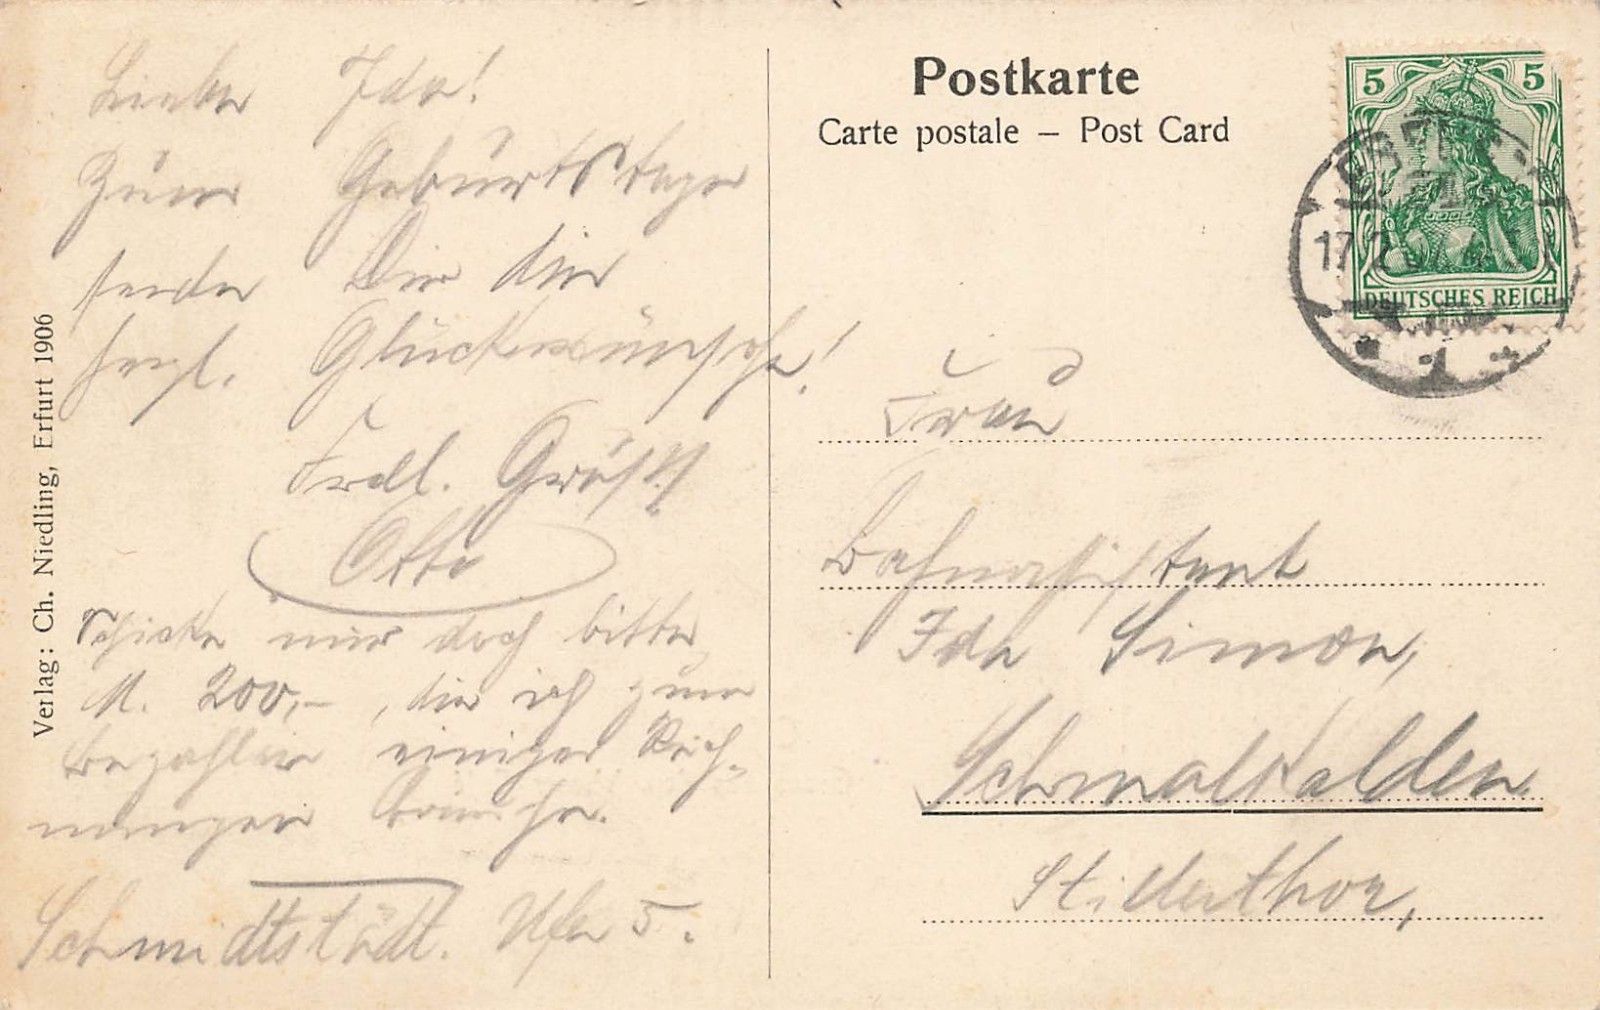 Liebe Ida!
Zum Geburtstage
sende Dir die
herzl. Glückwünsche!
Frdl. Gruß
Otto
Schicke mir doch bitte
M. 200,-, die ich zum
Bezahlen einiger Rech-
nungen brauche.
Schmidtstädt. Ufer 5.
Verlag: Ch. Niedling, Erfurt 1906
Postkarte
Carte postale – Post Card
5 5
DEUTSCHES REICH
17.2.07
1
Frau
Bahnassistent
Ida Simon,
Schmalkalden
Stillerthor,